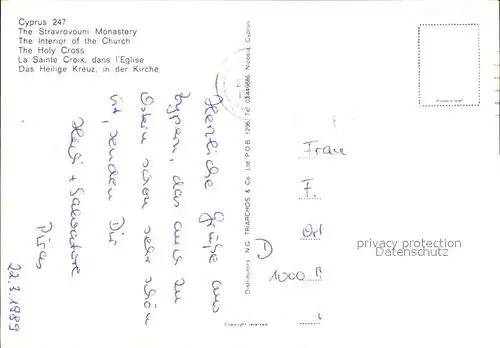 Cyprus 247
The Stravrovouni Monastery
The Interior of the Church
The Holy Cross
La Sainte Croix, dans l'Eglise
Das Heilige Kreuz, in der Kirche
Herzliche Grüße aus
Zypern, das auch zu
Ostern schon sehr schön
ist, senden Dir
Heidi + Salvatore
22.3.1989
Distributors N.G. TRIARCHOS & Co Ltd P.O.B. 1296 Tel. Nicosia, Cyprus
Copyright reserved
Frau
F.
Ort
1000 B
privacy protection
Datenschutz